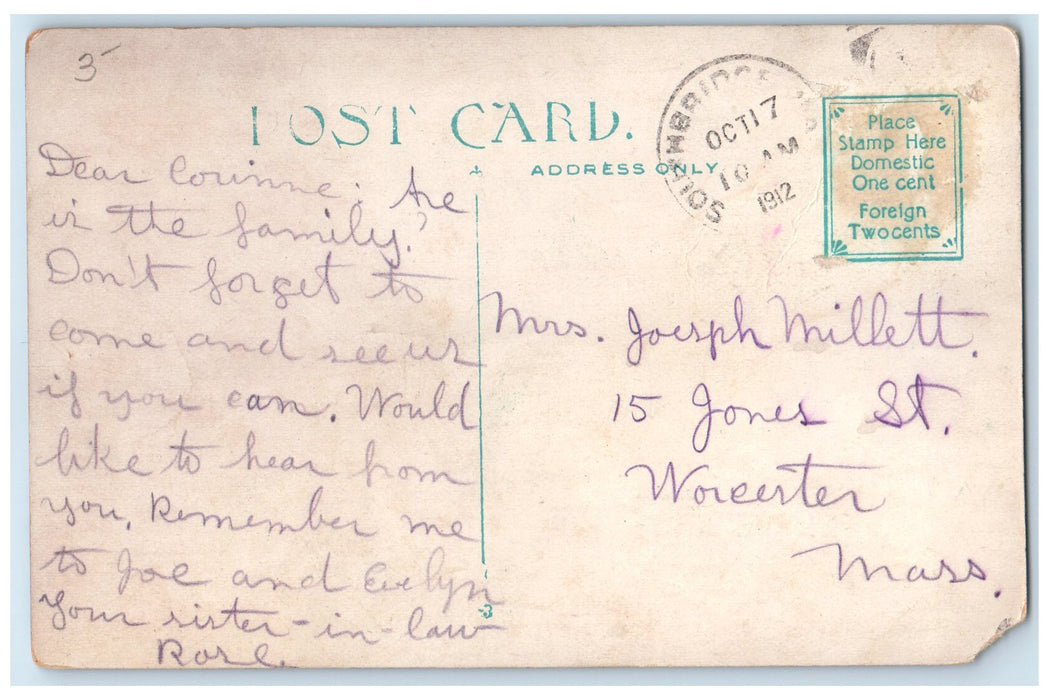 3-
POST CARD.
ADDRESS ONLY
SOUTHBRIDGE
OCT 17
10 AM
1912
Place
Stamp Here
Domestic
One cent
Foreign
Two cents
Dear Corinne: Are
is the family?
Don't forget to
come and see us
if you can. Would
like to hear from
you. Remember me
to Joe and Evelyn
Your sister-in-law
Rose.
Mrs. Joesph Millett.
15 Jones St.
Worcester
Mass.
3